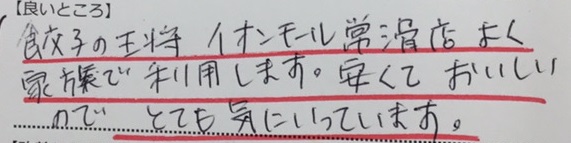 【良いところ】
餃子の王将 イオンモール常滑店 よく
家族で 利用します。安くて おいしい
ので とても 気にいっています。